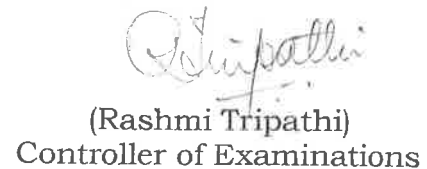 RTripathi
(Rashmi Tripathi)
Controller of Examinations